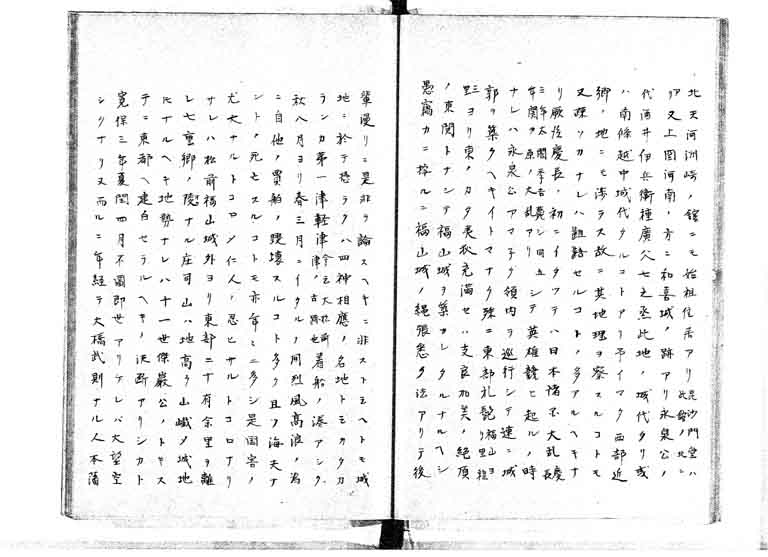 北天河洲崎ノ鎧ニモ始祖住居アリ毘沙門堂ハ此館ノ北ニ
アリ又上国河南ノ方ニ和喜城ノ跡アリ永泉公ノ
代河井伊兵衛種廣父七之丞此地ノ城代タリ或
ハ南條越中城代タルコトアリ予イマタ西部近
郷ノ地ニモ渉ラス故ニ其地理ヲ察スルコトモ
又疎ソカナレハ齟齬セルコトノ多アルヘキナ
リ厥后慶長ノ初ニイタツテハ日本諸不大乱慶長
三年太閤秀吉薨シ同五年関ヶ原ノ大乱アリシテ英雄競ヒ起ルノ時
ナレハ永泉公アマ子ク領内ヲ巡行シテ連ニ城
郭ヲ築クヘキイトマナク殊ニ東部札髭福山ヨリ里程
三ヨリ東ノカタ夷狄充満セハ支良加美ノ絶頂
ノ東関トナシテ福山城ヲ築カレタルナルヘシ
愚竊カニ按ルニ福山城ノ縄張悉ク法アリテ後
輩漫リニ是非ヲ論スヘキニ非ストモヘトモ城
地ニ於テ恐ラクハ四神相應ノ名地トモカタカ
ランカ第一津軽津着船ノ湊アシク
秋八月ヨリ春三月ニイタルノ間烈風高浪ノ為
ニ自他ノ買船ノ破壊スルコト多ク且ツ海夫ナ
ントノ死セスルコトモ亦年々ニ多シ是国害ノ
尤大ナルトコロノ仁人ノ忍ヒサルトコロナリ
ナレハ松前福山城外ヨリ東部二十有余里ヲ離
レ七重郷ノ陵ナル庄司山ハ地高ク山峨メ城地
ニナルヘキ地勢ナレハ十一世傑巖公ノトキス
テニ東都ヘ建白セラルヘキノ決断アリシカト
寛保三年夏閏四月不図即世アリケレバ大望空
シクナリヌ而ルニ年経テ大橋武則ナル人本藩